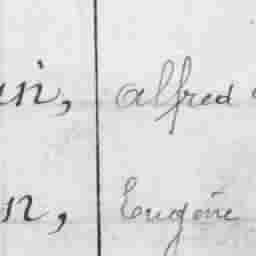 in, Alfred
n, Eugène